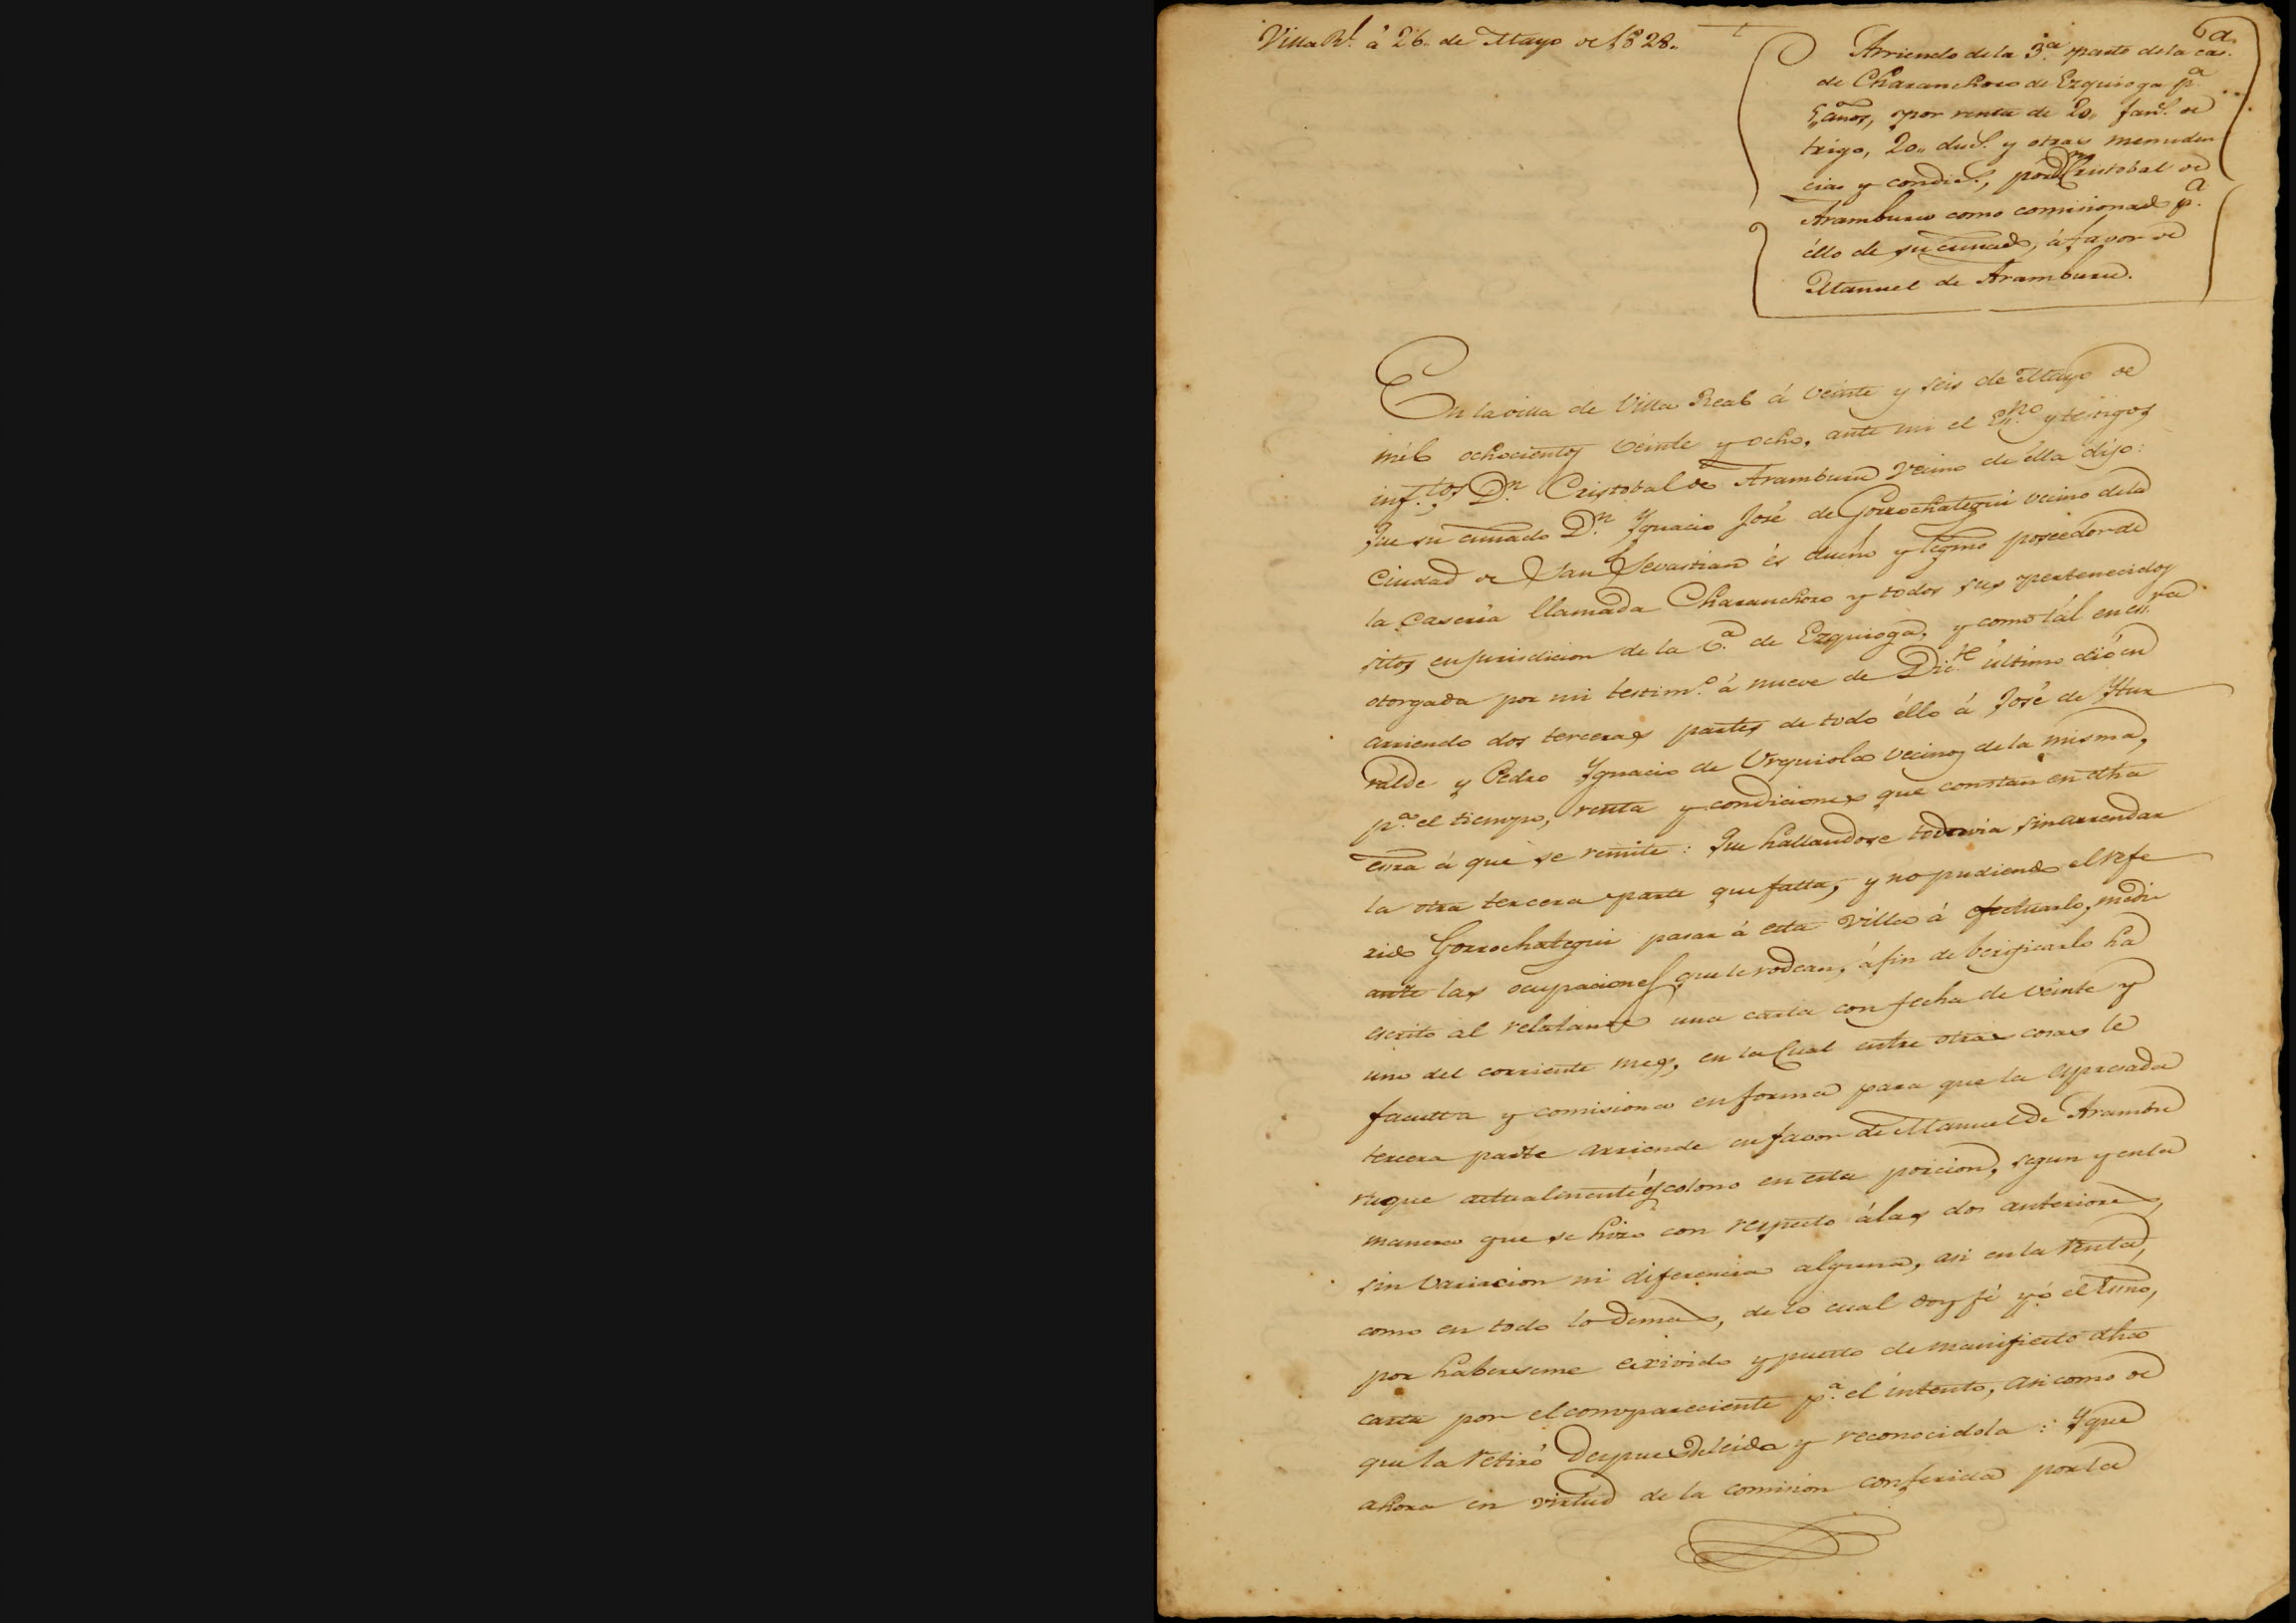 Villa Rl. á 26 de Mayo de 1828.
Arriendo de la 3.a parte de la cas.a
de Charanchoro de Ezquioga p.a
5 años, por renta de 20,, fans. de
trigo, 20,, dus. y otras menuden
cias y condics., por Dn Cristobal de
Aramburu como comisionado p.a
éllo de su cuñado, á favor de
Manuel de Aramburu.
En la villa de Villa Real á veinte y seis de Mayo de
mil ochocientos veinte y ocho, ante mi el Esno. y testigos
inf.tos Dn. Cristobal de Aramburu vecino de ella dijo:
Que su cuñado Dn. Ygnacio José de Gorrochategui vecino de la
Ciudad de San Sevastian és dueño y legmo poseedor de
la Caseria llamada Charanchoro y todos sus pertenecidos
sitos en jurisdicion de la v.a de Ezquioga, y como tál en esra
otorgada por mi testim.o á nueve de Dic.e último dió en
arriendo dos terceras partes de todo éllo á José de Ytur
ralde y Pedro Ygnacio de Urquiola vecinos de la misma,
p.a el tiempo, renta y condiciones que constan en dha
esra á que se remite: Que hallandose todavia sin arrendar
la otra tercera parte que falta, y no pudiendo el refe
rido Gorrochategui pasar á esta Villa á efectuarlo, medi
ante las ocupaciones que le rodean, á fin de berificarlo ha
escrito al relatante una carta con fecha de veinte y
uno del corriente mes, en la Cual entre otras cosas le
faculta y comisiona en forma para que la espresada
tercera parte arriende en favor de Manuel de Arambu
ru que actualmente és colono en esta porcion, segun y en la
manera que se hizo con respecto á las dos anteriores,
sin variacion ni diferencia alguna, asi en la renta,
como en todo lo demas, de lo cual doy fé yó el Esno,
por haberseme exivido y puesto de manifiesto dha
carta por el compareciente p.a el intento, asi como de
que la retiró despues de leida y reconocidola: Y que
ahora en virtud de la comision conferida por la